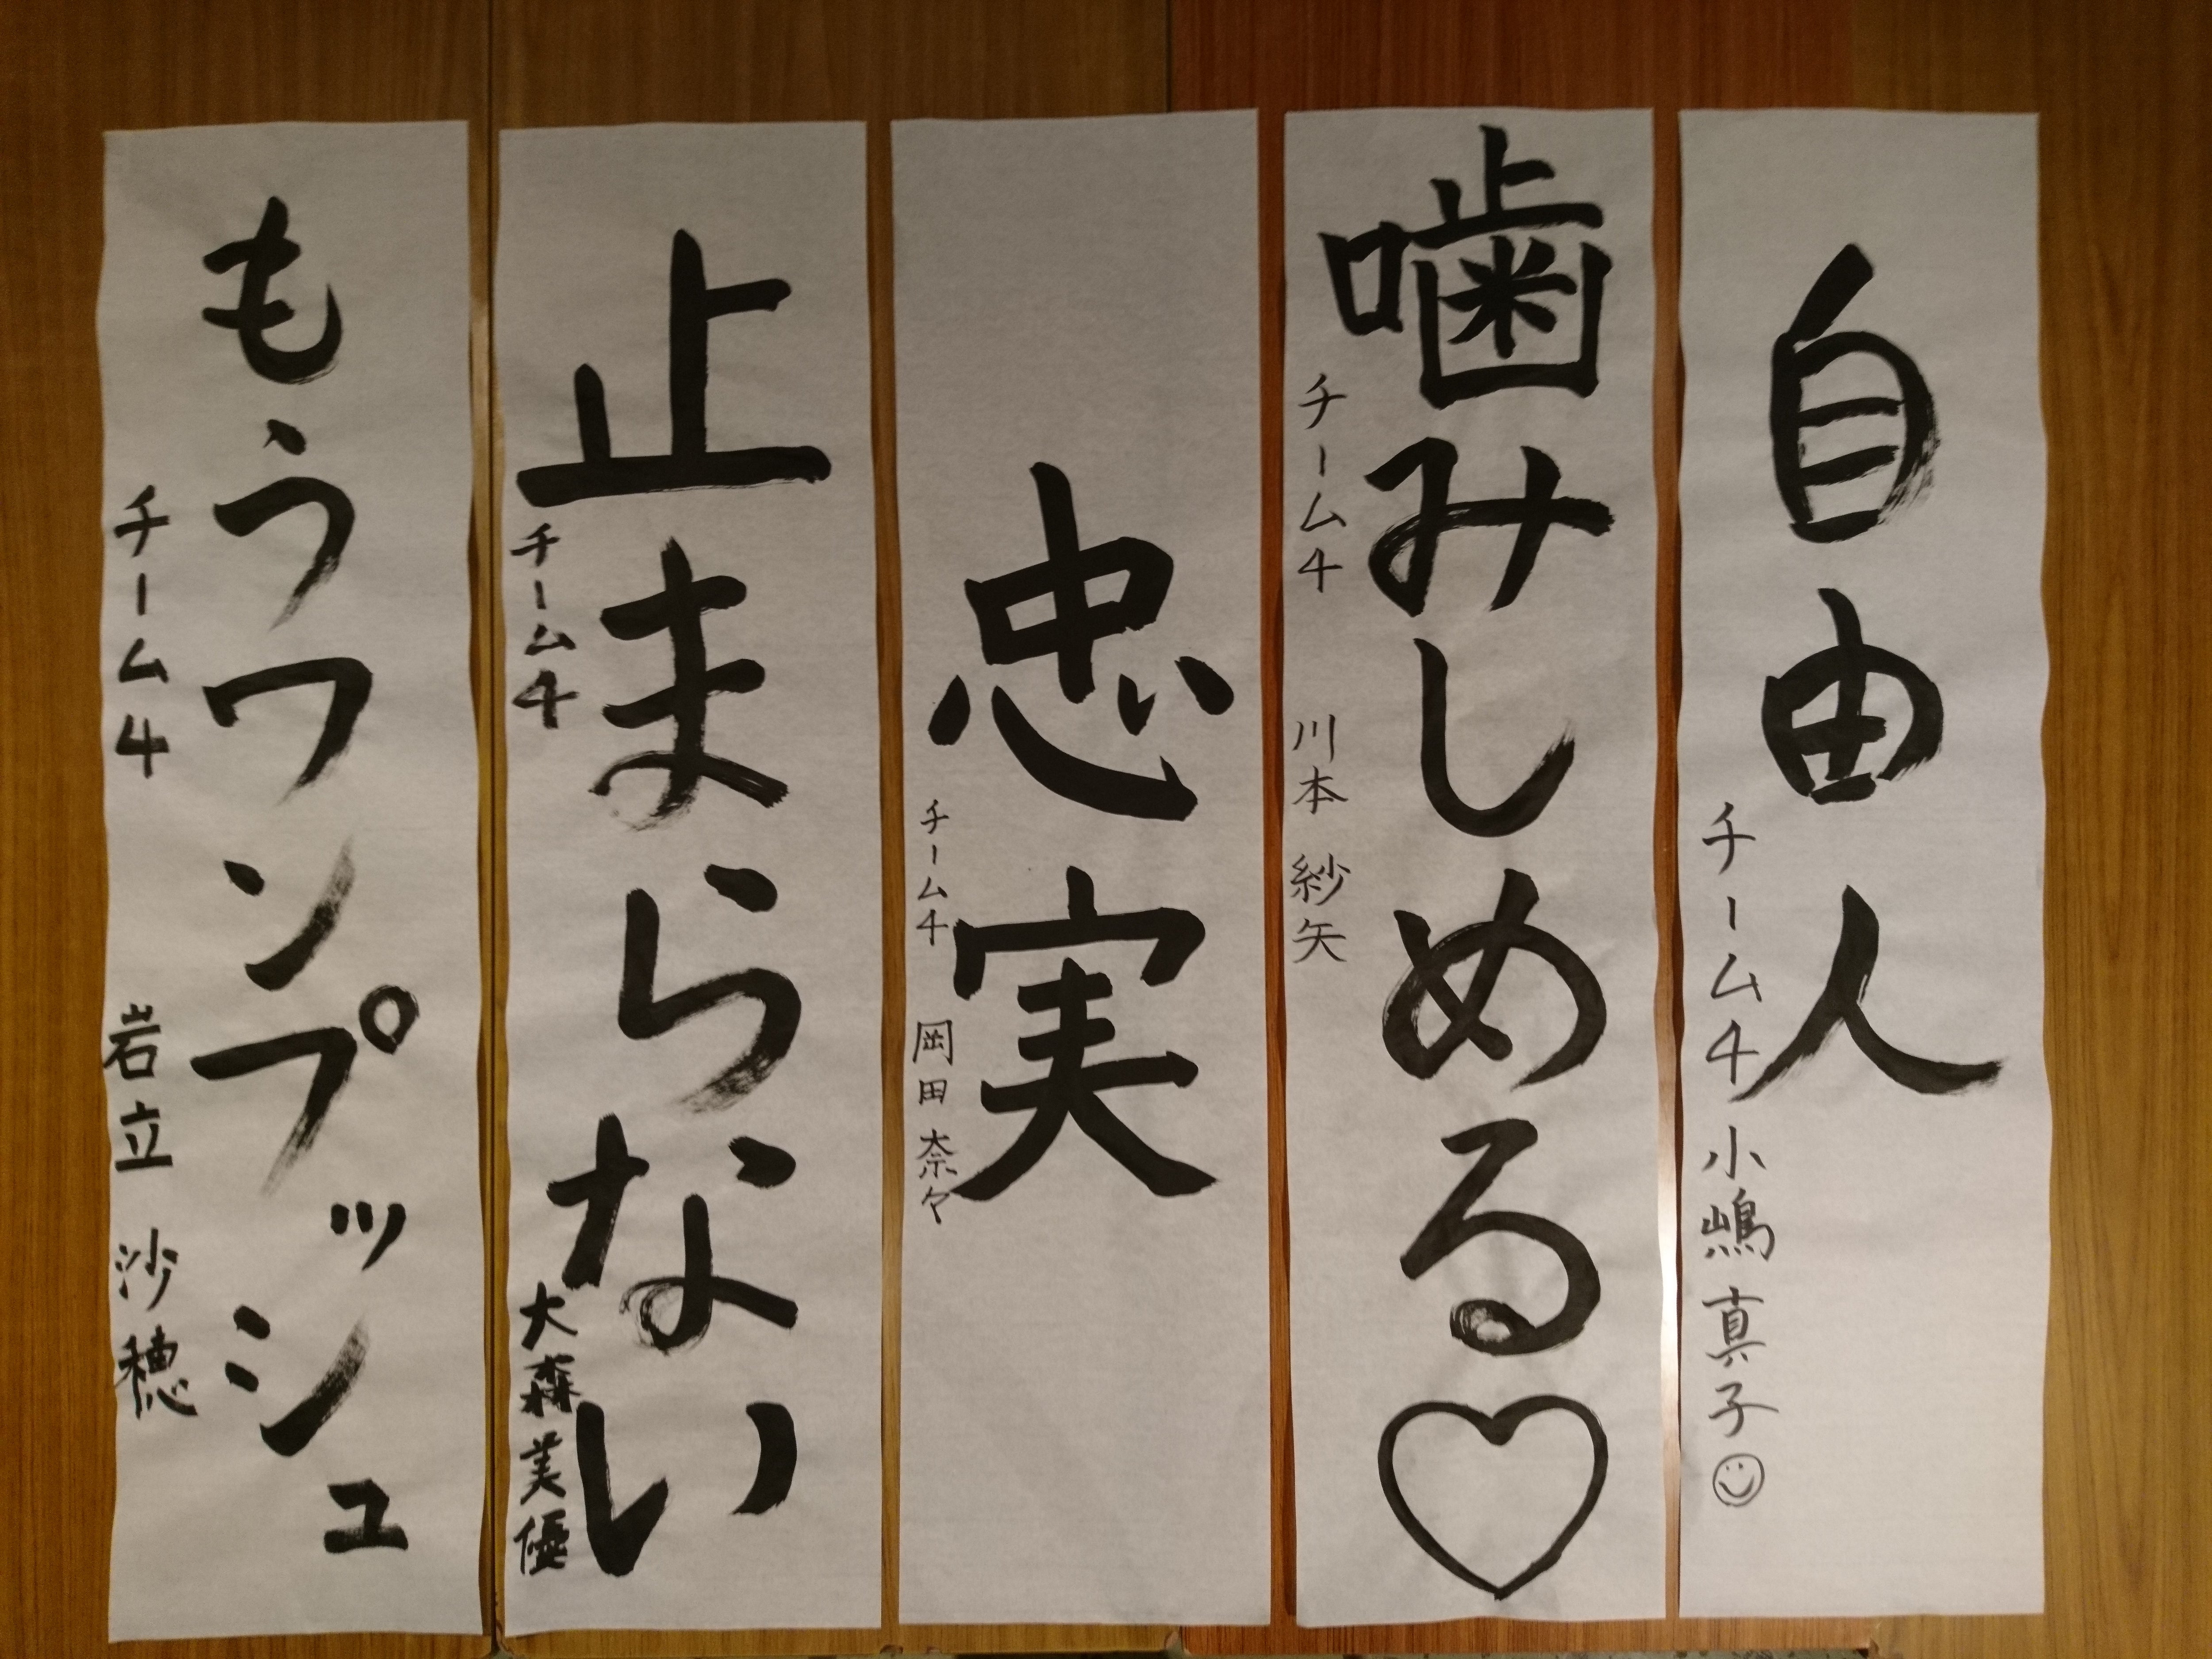 自由人
チーム4 小嶋真子
噛みしめる♡
チーム4 川本紗矢
忠実
チーム4 岡田奈々
止まらない
チーム4 大森美優
もうワンプッシュ
チーム4 岩立沙穂